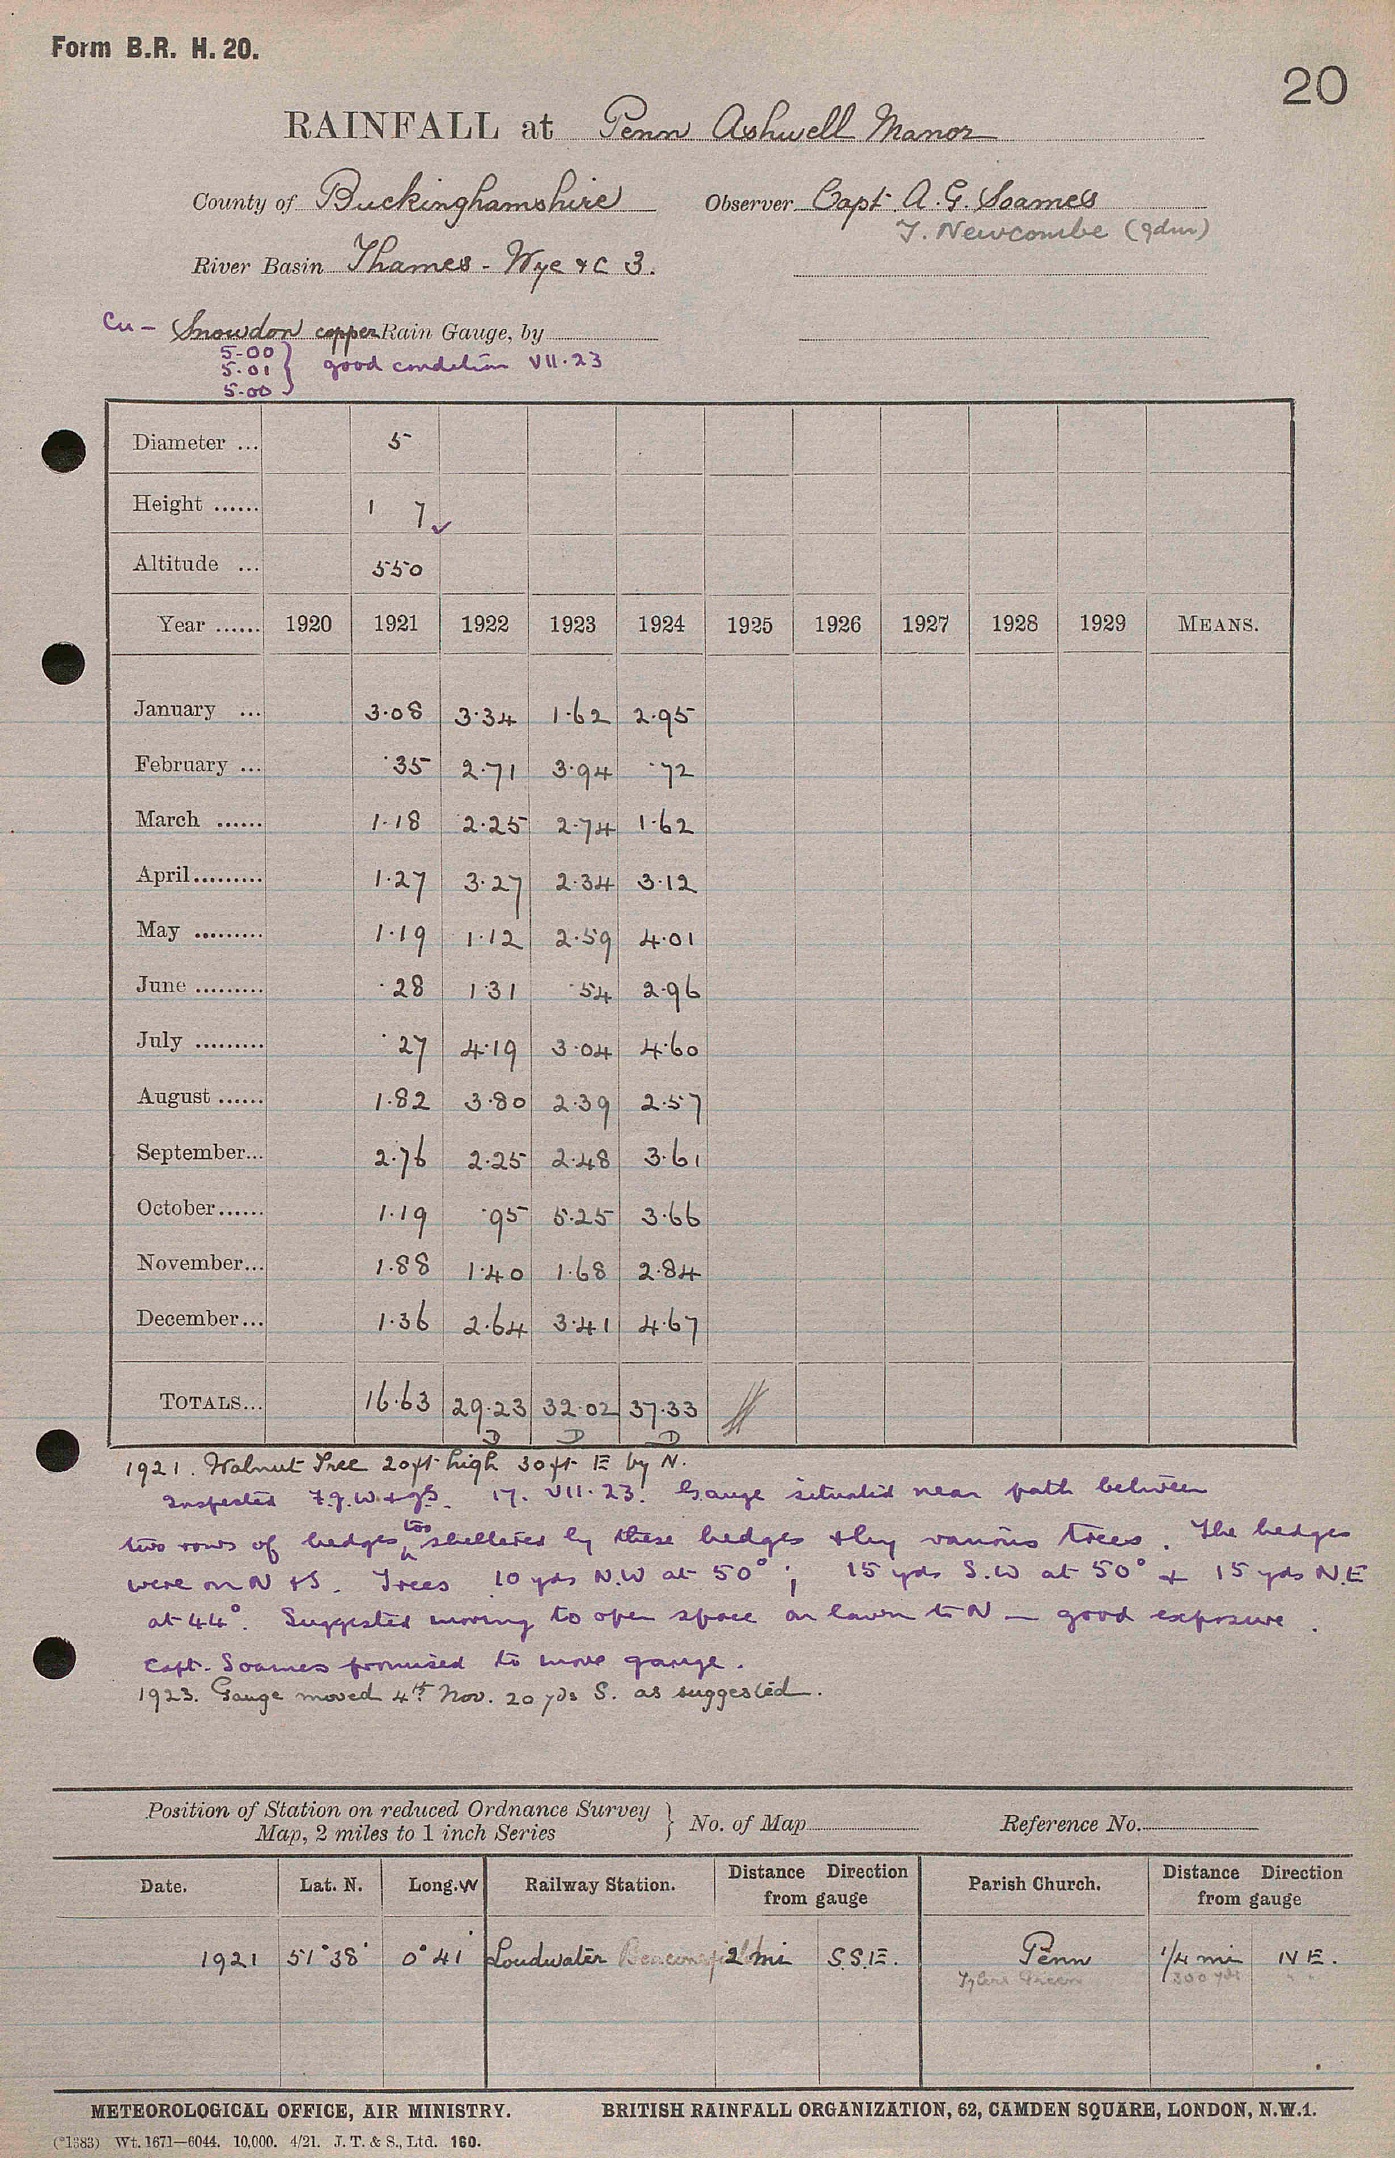 Form B.R. H. 20.
20
RAINFALL at Penn Ashwell Manor
County of Buckinghamshire Observer Capt. A. G. Soames
T. Newcombe (gdnr)
River Basin Thames - Wye &c 3.
Cu - Snowdon copper Rain Gauge, by
5.00
5.01 } good condition VII.23
5.00
Diameter ... 5
Height ...... 1 7 ✓
Altitude ... 550
Year ...... 1920 1921 1922 1923 1924 1925 1926 1927 1928 1929 MEANS.
January ... 3.08 3.34 1.62 2.95
February ... .35 2.71 3.94 .72
March ...... 1.18 2.25 2.74 1.62
April......... 1.27 3.27 2.34 3.12
May ......... 1.19 1.12 2.59 4.01
June ......... .28 1.31 .54 2.96
July ......... .27 4.19 3.04 4.60
August ...... 1.82 3.80 2.39 2.57
September... 2.76 2.25 2.48 3.61
October...... 1.19 .95 5.25 3.66
November... 1.88 1.40 1.68 2.84
December... 1.36 2.64 3.41 4.67
TOTALS... 16.63 29.23 32.02 37.33
D D D
1921. Walnut Tree 20ft high 30ft E by N.
Inspected 17. VII. 23. Gauge situated near path between
two rows of hedges too sheltered by these hedges & by various trees. The hedges
were on N & S. Trees 10 yds N.W at 50°; 15 yds S.W at 50° + 15 yds N.E
at 44°. Suggested moving to open space on lawn to N — good exposure.
Capt. Soames promised to move gauge.
1923. Gauge moved 4th Nov. 20 yds S. as suggested.
Position of Station on reduced Ordnance Survey
Map, 2 miles to 1 inch Series } No. of Map Reference No.
Date. Lat. N. Long. W Railway Station. Distance Direction from gauge Parish Church. Distance Direction from gauge
1921 51° 38' 0° 41' Loudwater Beaconsfield 2 mi S.S.E. Penn 1/4 mi N E.
Tylers Green 300 yds " "
METEOROLOGICAL OFFICE, AIR MINISTRY. BRITISH RAINFALL ORGANIZATION, 62, CAMDEN SQUARE, LONDON, N.W.1.
(*1383) Wt. 1671—6044. 10,000. 4/21. J. T. & S., Ltd. 160.